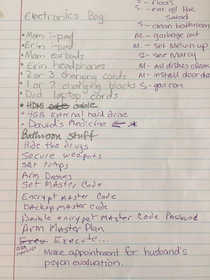 Electronics Bag
• Mom i-pad
• Erin i-pad
• Mom earbuds
• Erin headphones
• 2 or 3 charging cords
• 1 or 2 charging blocks
• Dad laptop cords
• HDMI cable
• 4GB External hard drive
• David's Medicine
Bathroom stuff
Hide the drugs
Secure weapons
Set traps
Arm Drones
Set Master Code
Encrypt Master Code
Backup Master code
Double encrypt Master Code Password
Arm Master Plan
Execute...
Make appointment for husband's
psych evaluation.
S - floors
S - eat all the
salad
S - clean bathroom
M - garbage out
M - set Melvin up
S - see Marcy
M - all dishes clean
M - install door
S - gas can